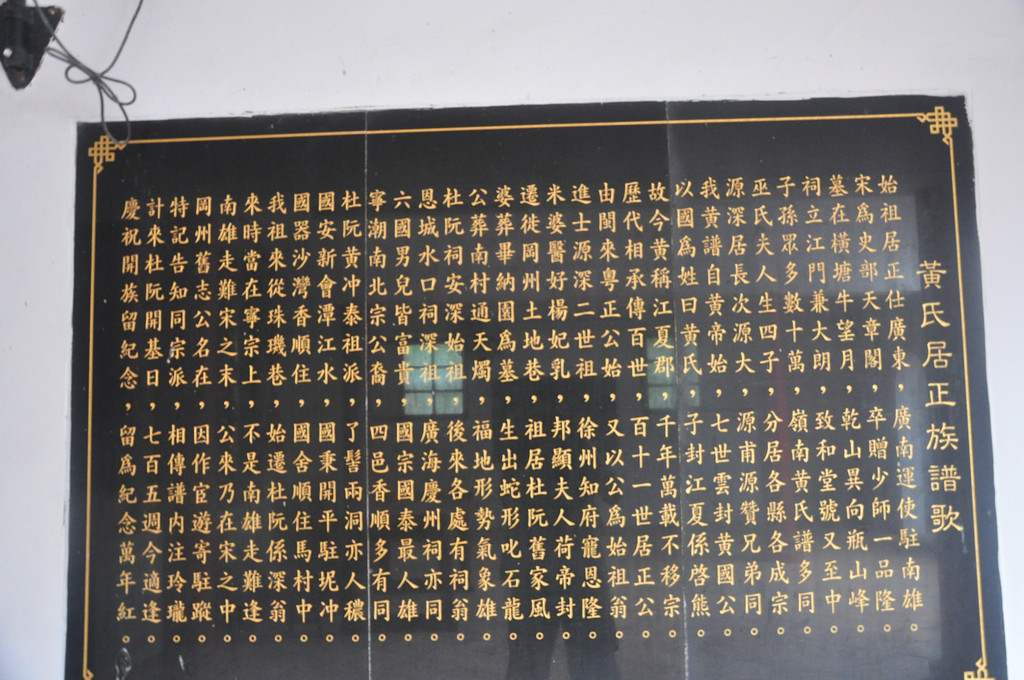 黃氏居正族譜歌
始祖居正仕廣東，廣南運使駐南雄。
宋為史部天章閣，卒贈少師一品隆。
墓在橫塘牛望月，乾山異向瓶山峰。
祠立江門兼大朗，致和堂號又至中。
子孫眾多數十萬，嶺南黃氏譜多同。
巫氏夫人生四子，分居各縣各成宗。
源深居長次源大，源甫源贊兄弟同。
我黃譜自黃帝始，七世雲封黃國公。
以國為姓曰黃氏，子封江夏係啓熊。
故今黃稱江夏郡，千年萬載不移宗。
歷代相承傳百世，百十一世居正公。
由閩來粵正公始，又以公為始祖翁。
進士源深二世祖，徐州知府寵恩隆。
米婆醫好楊妃乳，邦顯夫人荷帝封。
遷徙岡州土地巷，祖居杜阮舊家風。
婆葬畢納園為墓，生出蛇形叱石龍。
公葬南村通天燭，福地形勢氣象雄。
杜阮祠安深始祖，後來各處有祠翁。
恩城水口祠深祖，廣海慶州祠亦同。
六國男兒皆富貴，國宗國泰最人雄。
寧潮南北宗公裔，四邑香順多有同。
杜阮黃冲泰祖派，了髻兩洞亦人穠。
國安新會潭江水，國秉開平駐坭冲。
國器沙灣香順住，國舍順住馬村中。
我祖來從珠璣巷，始遷杜阮係深翁。
來時當在寧宗上，不是南雄走難逢。
南雄走難宋之末，公來乃在宋之中。
岡州舊志公名在，因作宦遊寄駐蹤。
特記告知同宗派，相傳譜內注玲瓏。
計來杜阮開基日，七百五週今適逢。
慶祝開族留紀念，留為紀念萬年紅。